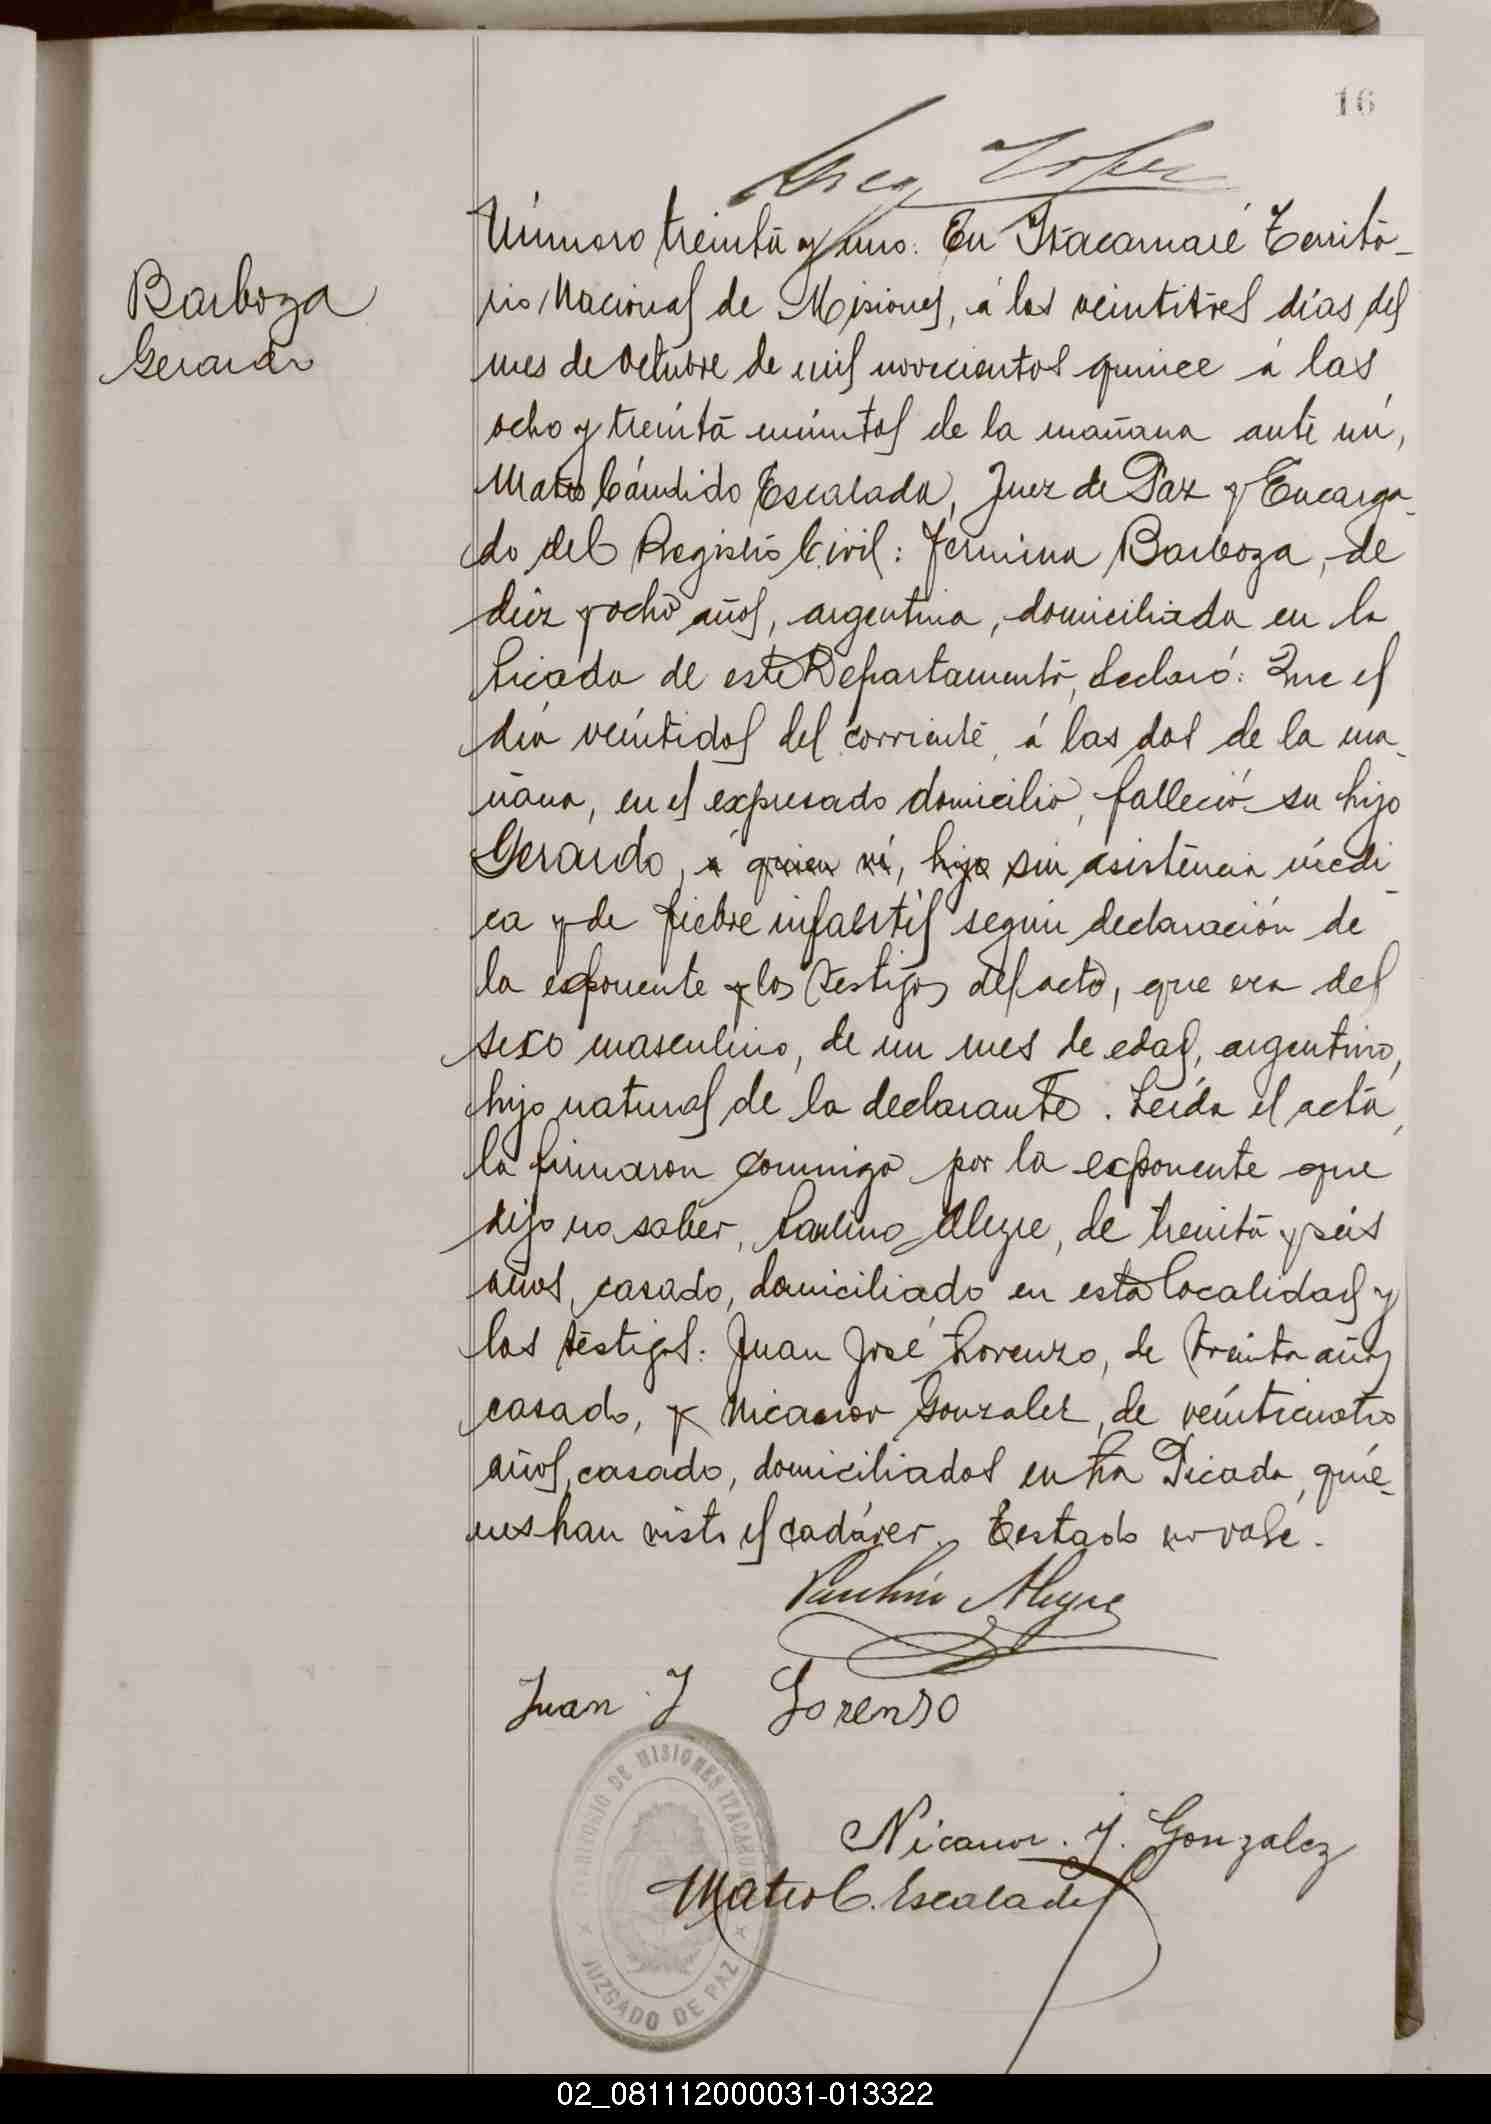 16
Barboza
Gerardo
Número treinta y uno: En Itacaruaré Territo-
rio Nacional de Misiones, á los veintitres días del
mes de Octubre de mil novecientos quince á las
ocho y treinta minutos de la mañana ante mí,
Mateo Cándido Escalada, Juez de Paz y Encarga-
do del Registro Civil: Fermina Barboza, de
diez y ocho años, argentina, domiciliada en la
Picada de este Departamento, declaró: Que el
día veintidos del corriente, á las dos de la ma-
ñana, en el expresado domicilio, falleció su hijo
Gerardo, á quien ví, hijo sin asistencia médi-
ca y de fiebre infantil segun declaración de
la exponente y los testigos del acto, que era del
sexo masculino, de un mes de edad, argentino,
hijo natural de la declarante. Leída el acta,
la firmaron conmigo por la exponente que
dijo no saber, Paulino Alegre, de treinta y seis
años, casado, domiciliado en esta localidad y
los testigos: Juan José Lorenzo, de treinta años
casado, y Nicanor Gonzalez, de veinticuatro
años, casado, domiciliados en la Picada, quie-
nes han visto el cadáver. Testado no vale.
Paulino Alegre
Juan J Lorenso
Nicanor. J. Gonzalez
Mateo C. Escalada
TERRITORIO DE MISIONES ITACARUARE
JUZGADO DE PAZ
02_081112000031-013322